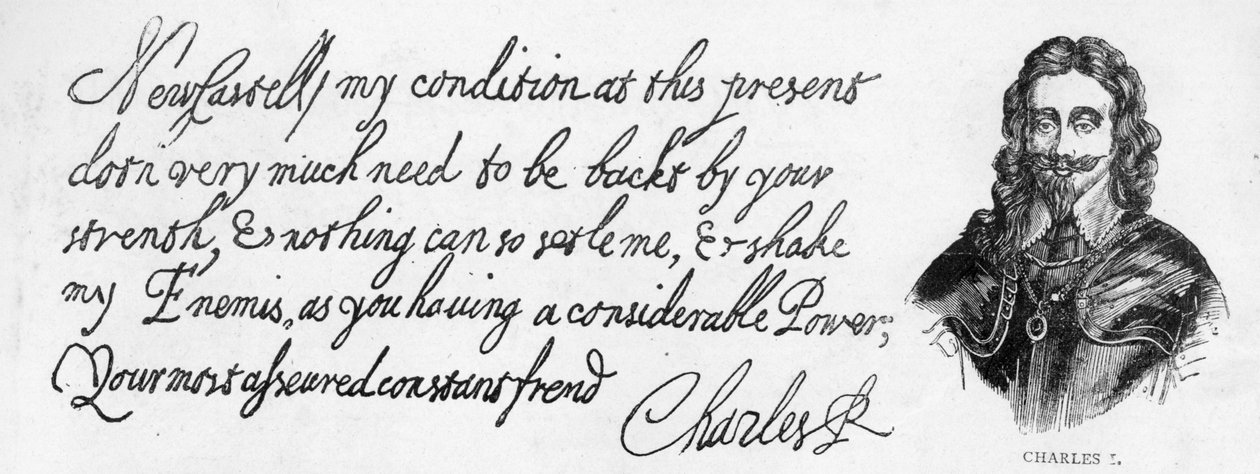 NewCastell/ my condition at this present
doth very much need to be backt by your
strenth, & nothing can so setle me, & shake
my Enemis, as you having a considerable Power;
Your most asseured constant frend
Charles R
CHARLES I.